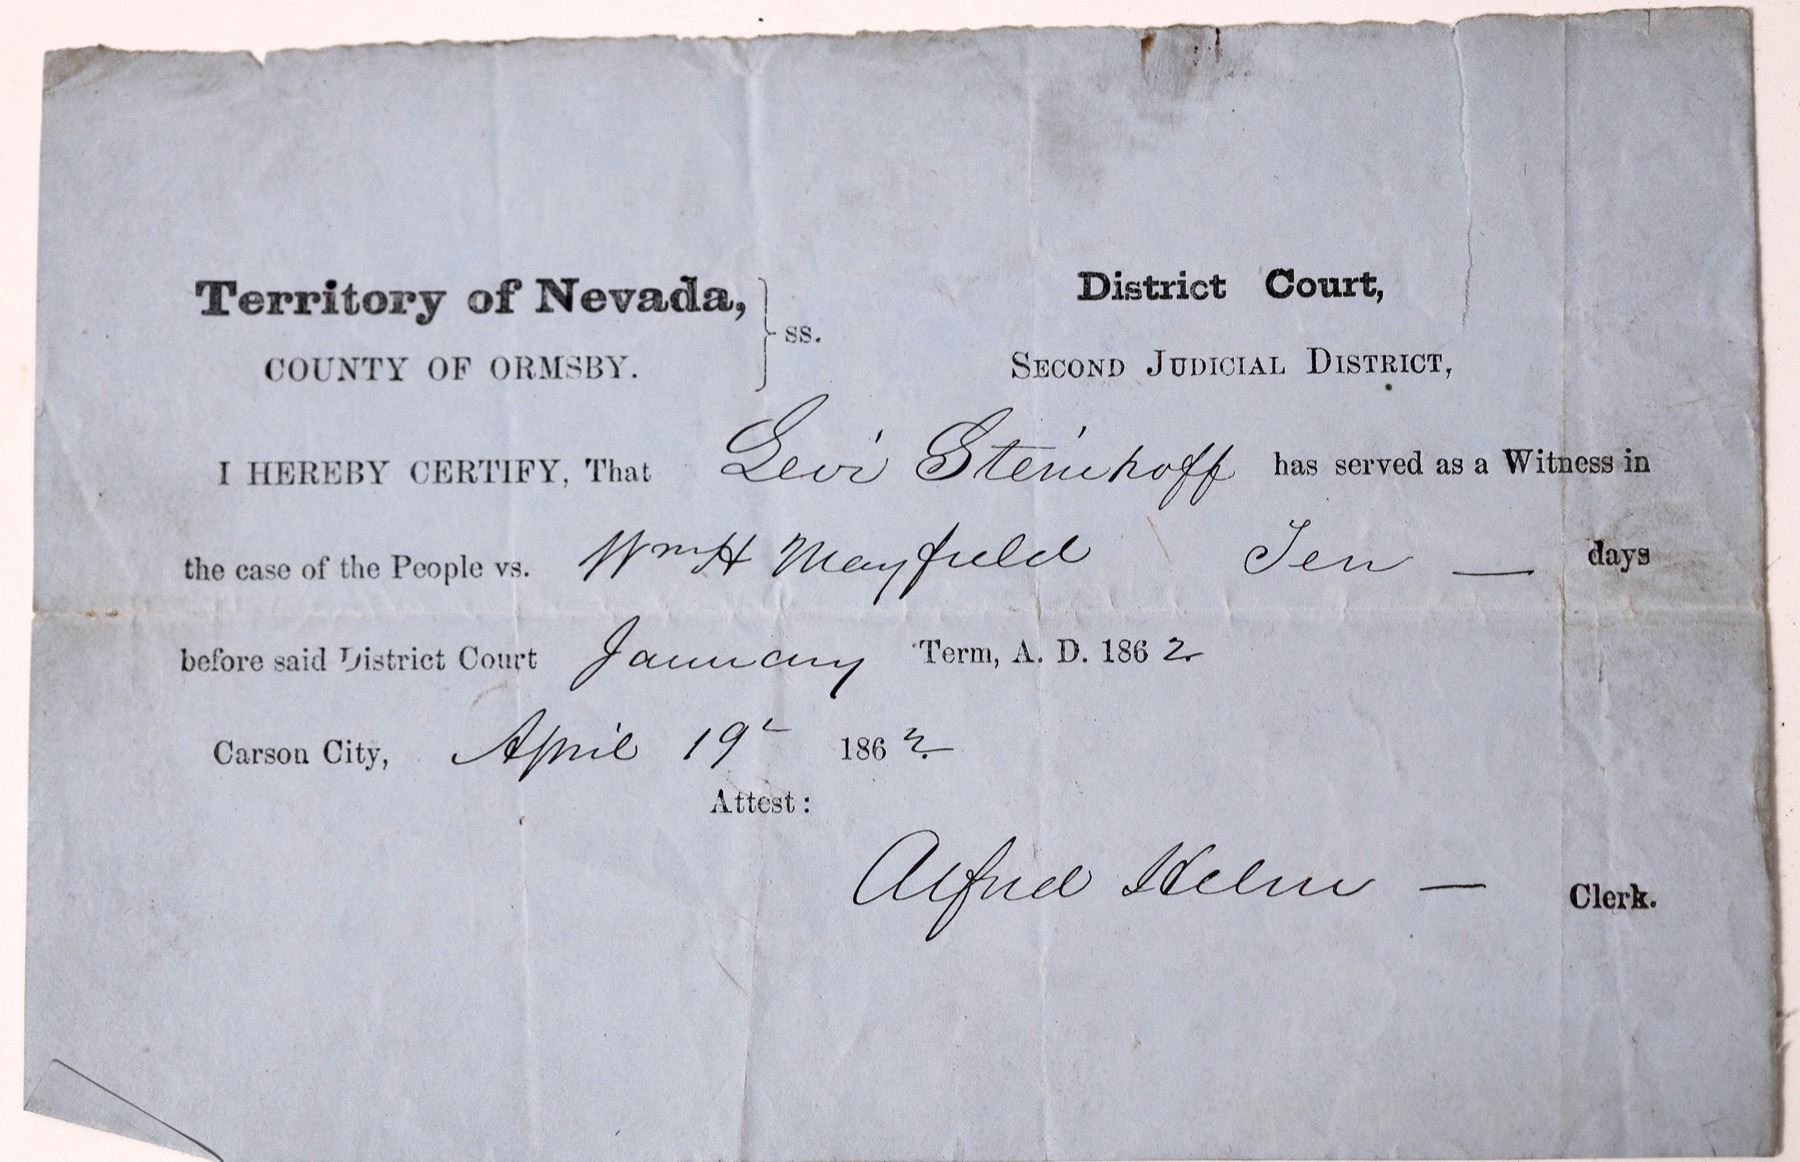 Territory of Nevada, } ss. District Court,
COUNTY OF ORMSBY. SECOND JUDICIAL DISTRICT,
I HEREBY CERTIFY, That Levi Steinhoff has served as a Witness in
the case of the People vs. Wm H Mayfield Ten — days
before said District Court January Term, A. D. 1862
Carson City, April 19 1862.
Attest:
Alfred Helm — Clerk.